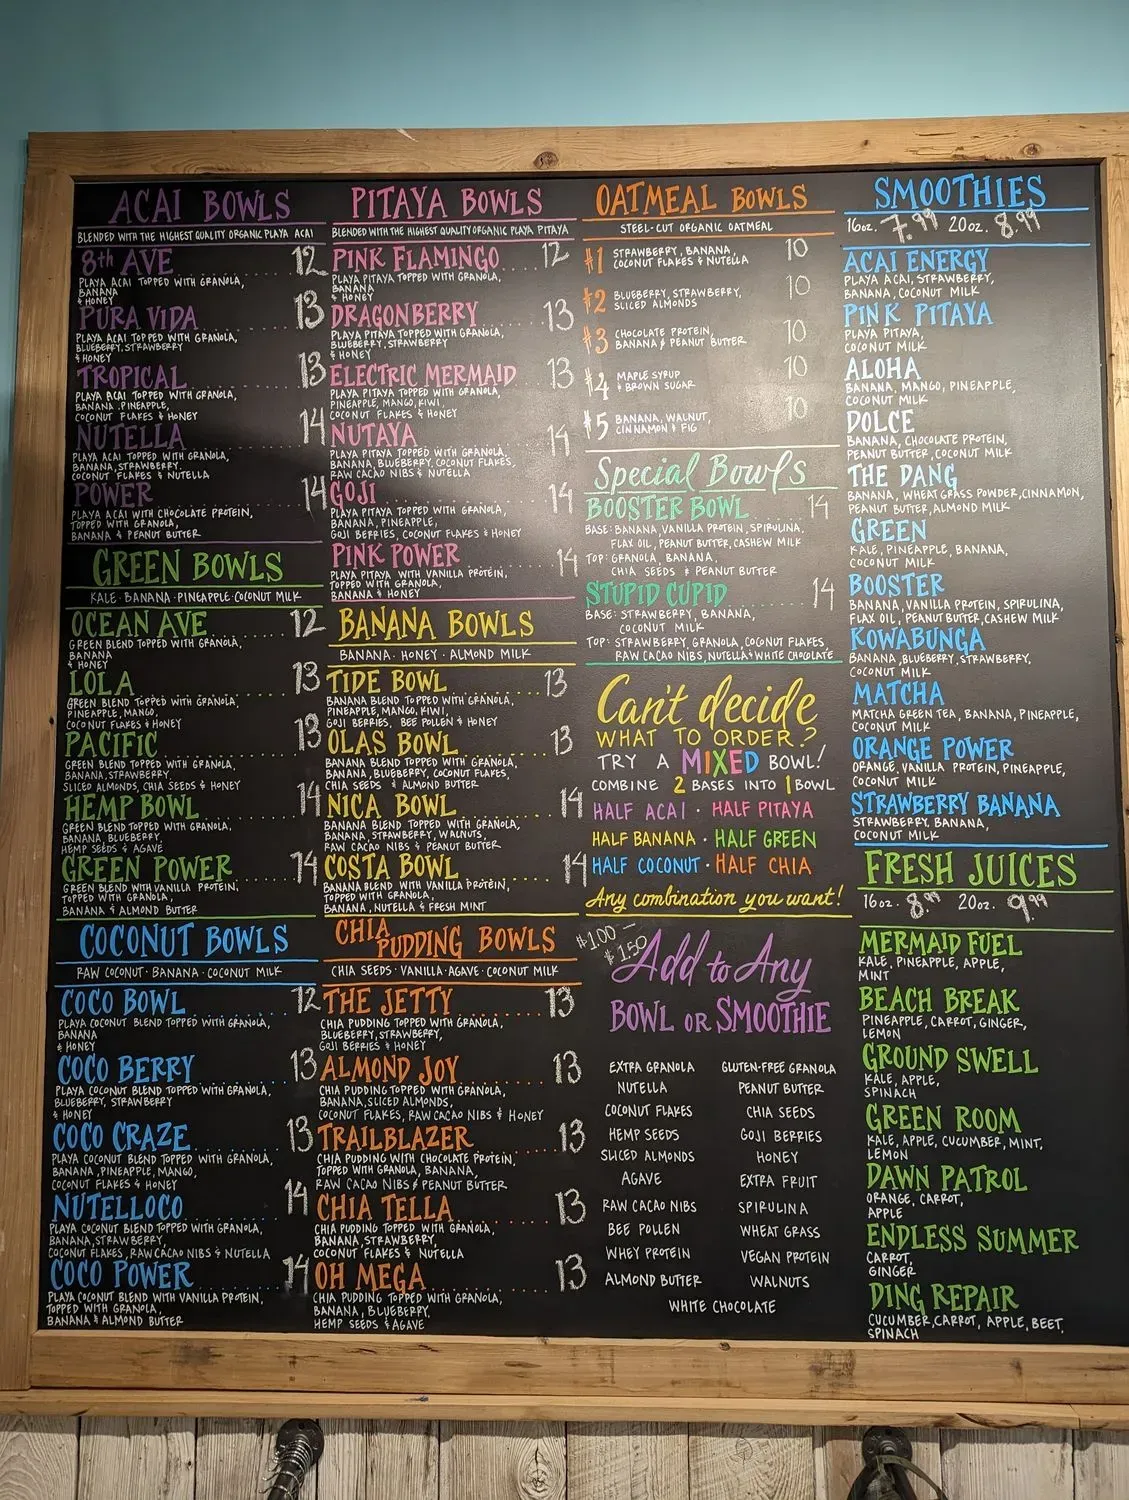 ACAI BOWLS
BLENDED WITH THE HIGHEST QUALITY ORGANIC PLAYA ACAI
8th AVE 12
PLAYA ACAI TOPPED WITH GRANOLA,
BANANA
& HONEY
PURA VIDA 13
PLAYA ACAI TOPPED WITH GRANOLA,
BLUEBERRY, STRAWBERRY
& HONEY
TROPICAL 13
PLAYA ACAI TOPPED WITH GRANOLA,
BANANA, PINEAPPLE,
COCONUT FLAKES & HONEY
NUTELLA 14
PLAYA ACAI TOPPED WITH GRANOLA,
BANANA, STRAWBERRY,
COCONUT FLAKES & NUTELLA
POWER 14
PLAYA ACAI WITH CHOCOLATE PROTEIN,
TOPPED WITH GRANOLA,
BANANA & PEANUT BUTTER
GREEN BOWLS
KALE · BANANA · PINEAPPLE · COCONUT MILK
OCEAN AVE 12
GREEN BLEND TOPPED WITH GRANOLA,
BANANA
& HONEY
LOLA 13
GREEN BLEND TOPPED WITH GRANOLA,
PINEAPPLE, MANGO,
COCONUT FLAKES & HONEY
PACIFIC 13
GREEN BLEND TOPPED WITH GRANOLA,
BANANA, STRAWBERRY,
SLICED ALMONDS, CHIA SEEDS & HONEY
HEMP BOWL 14
GREEN BLEND TOPPED WITH GRANOLA,
BANANA, BLUEBERRY,
HEMP SEEDS & AGAVE
GREEN POWER 14
GREEN BLEND WITH VANILLA PROTEIN,
TOPPED WITH GRANOLA,
BANANA & ALMOND BUTTER
COCONUT BOWLS
RAW COCONUT · BANANA · COCONUT MILK
COCO BOWL 12
PLAYA COCONUT BLEND TOPPED WITH GRANOLA,
BANANA
& HONEY
COCO BERRY 13
PLAYA COCONUT BLEND TOPPED WITH GRANOLA,
BLUEBERRY, STRAWBERRY
& HONEY
COCO CRAZE 13
PLAYA COCONUT BLEND TOPPED WITH GRANOLA,
BANANA, PINEAPPLE, MANGO,
COCONUT FLAKES & HONEY
NUTELLOCO 14
PLAYA COCONUT BLEND TOPPED WITH GRANOLA,
BANANA, STRAWBERRY,
COCONUT FLAKES, RAW CACAO NIBS & NUTELLA
COCO POWER 14
PLAYA COCONUT BLEND WITH VANILLA PROTEIN,
TOPPED WITH GRANOLA,
BANANA & ALMOND BUTTER
PITAYA BOWLS
BLENDED WITH THE HIGHEST QUALITY ORGANIC PLAYA PITAYA
PINK FLAMINGO 12
PLAYA PITAYA TOPPED WITH GRANOLA,
BANANA
& HONEY
DRAGONBERRY 13
PLAYA PITAYA TOPPED WITH GRANOLA,
BLUEBERRY, STRAWBERRY
& HONEY
ELECTRIC MERMAID 13
PLAYA PITAYA TOPPED WITH GRANOLA,
PINEAPPLE, MANGO, KIWI,
COCONUT FLAKES & HONEY
NUTAYA 14
PLAYA PITAYA TOPPED WITH GRANOLA,
BANANA, BLUEBERRY, COCONUT FLAKES,
RAW CACAO NIBS & NUTELLA
GOJI 14
PLAYA PITAYA TOPPED WITH GRANOLA,
BANANA, PINEAPPLE,
GOJI BERRIES, COCONUT FLAKES & HONEY
PINK POWER 14
PLAYA PITAYA WITH VANILLA PROTEIN,
TOPPED WITH GRANOLA,
BANANA & HONEY
BANANA BOWLS
BANANA · HONEY · ALMOND MILK
TIDE BOWL 13
BANANA BLEND TOPPED WITH GRANOLA,
PINEAPPLE, MANGO, KIWI,
GOJI BERRIES, BEE POLLEN & HONEY
OLAS BOWL 13
BANANA BLEND TOPPED WITH GRANOLA,
BANANA, BLUEBERRY, COCONUT FLAKES,
CHIA SEEDS & ALMOND BUTTER
NICA BOWL 14
BANANA BLEND TOPPED WITH GRANOLA,
BANANA, STRAWBERRY, WALNUTS,
RAW CACAO NIBS & PEANUT BUTTER
COSTA BOWL 14
BANANA BLEND WITH VANILLA PROTEIN,
TOPPED WITH GRANOLA,
BANANA, NUTELLA & FRESH MINT
CHIA PUDDING BOWLS
CHIA SEEDS · VANILLA · AGAVE · COCONUT MILK
THE JETTY 13
CHIA PUDDING TOPPED WITH GRANOLA,
BLUEBERRY, STRAWBERRY,
GOJI BERRIES & HONEY
ALMOND JOY 13
CHIA PUDDING TOPPED WITH GRANOLA,
BANANA, SLICED ALMONDS,
COCONUT FLAKES, RAW CACAO NIBS & HONEY
TRAILBLAZER 13
CHIA PUDDING WITH CHOCOLATE PROTEIN,
TOPPED WITH GRANOLA, BANANA,
RAW CACAO NIBS & PEANUT BUTTER
CHIA TELLA 13
CHIA PUDDING TOPPED WITH GRANOLA,
BANANA, STRAWBERRY,
COCONUT FLAKES & NUTELLA
OH MEGA 13
CHIA PUDDING TOPPED WITH GRANOLA,
BANANA, BLUEBERRY,
HEMP SEEDS & AGAVE
OATMEAL BOWLS
STEEL-CUT ORGANIC OATMEAL
#1 STRAWBERRY, BANANA, 10
COCONUT FLAKES & NUTELLA
#2 BLUEBERRY, STRAWBERRY, 10
SLICED ALMONDS
#3 CHOCOLATE PROTEIN, 10
BANANA & PEANUT BUTTER
#4 MAPLE SYRUP 10
& BROWN SUGAR
#5 BANANA, WALNUT, 10
CINNAMON & FIG
Special Bowls
BOOSTER BOWL 14
BASE: BANANA, VANILLA PROTEIN, SPIRULINA,
FLAX OIL, PEANUT BUTTER, CASHEW MILK
TOP: GRANOLA, BANANA,
CHIA SEEDS & PEANUT BUTTER
STUPID CUPID 14
BASE: STRAWBERRY, BANANA,
COCONUT MILK
TOP: STRAWBERRY, GRANOLA, COCONUT FLAKES,
RAW CACAO NIBS, NUTELLA & WHITE CHOCOLATE
Can't decide
WHAT TO ORDER?
TRY A MIXED BOWL!
COMBINE 2 BASES INTO 1 BOWL
HALF ACAI · HALF PITAYA
HALF BANANA · HALF GREEN
HALF COCONUT · HALF CHIA
Any combination you want!
$1.00 -
$1.50
Add to Any
BOWL OR SMOOTHIE
EXTRA GRANOLA GLUTEN-FREE GRANOLA
NUTELLA PEANUT BUTTER
COCONUT FLAKES CHIA SEEDS
HEMP SEEDS GOJI BERRIES
SLICED ALMONDS HONEY
AGAVE EXTRA FRUIT
RAW CACAO NIBS SPIRULINA
BEE POLLEN WHEAT GRASS
WHEY PROTEIN VEGAN PROTEIN
ALMOND BUTTER WALNUTS
WHITE CHOCOLATE
SMOOTHIES
16oz. 7.99 20oz. 8.99
ACAI ENERGY
PLAYA ACAI, STRAWBERRY,
BANANA, COCONUT MILK
PINK PITAYA
PLAYA PITAYA,
COCONUT MILK
ALOHA
BANANA, MANGO, PINEAPPLE,
COCONUT MILK
DOLCE
BANANA, CHOCOLATE PROTEIN,
PEANUT BUTTER, COCONUT MILK
THE DANG
BANANA, WHEAT GRASS POWDER, CINNAMON,
PEANUT BUTTER, ALMOND MILK
GREEN
KALE, PINEAPPLE, BANANA,
COCONUT MILK
BOOSTER
BANANA, VANILLA PROTEIN, SPIRULINA,
FLAX OIL, PEANUT BUTTER, CASHEW MILK
KOWABUNGA
BANANA, BLUEBERRY, STRAWBERRY,
COCONUT MILK
MATCHA
MATCHA GREEN TEA, BANANA, PINEAPPLE,
COCONUT MILK
ORANGE POWER
ORANGE, VANILLA PROTEIN, PINEAPPLE,
COCONUT MILK
STRAWBERRY BANANA
STRAWBERRY, BANANA,
COCONUT MILK
FRESH JUICES
16oz. 8.99 20oz. 9.99
MERMAID FUEL
KALE, PINEAPPLE, APPLE,
MINT
BEACH BREAK
PINEAPPLE, CARROT, GINGER,
LEMON
GROUND SWELL
KALE, APPLE,
SPINACH
GREEN ROOM
KALE, APPLE, CUCUMBER, MINT,
LEMON
DAWN PATROL
ORANGE, CARROT,
APPLE
ENDLESS SUMMER
CARROT,
GINGER
DING REPAIR
CUCUMBER, CARROT, APPLE, BEET,
SPINACH